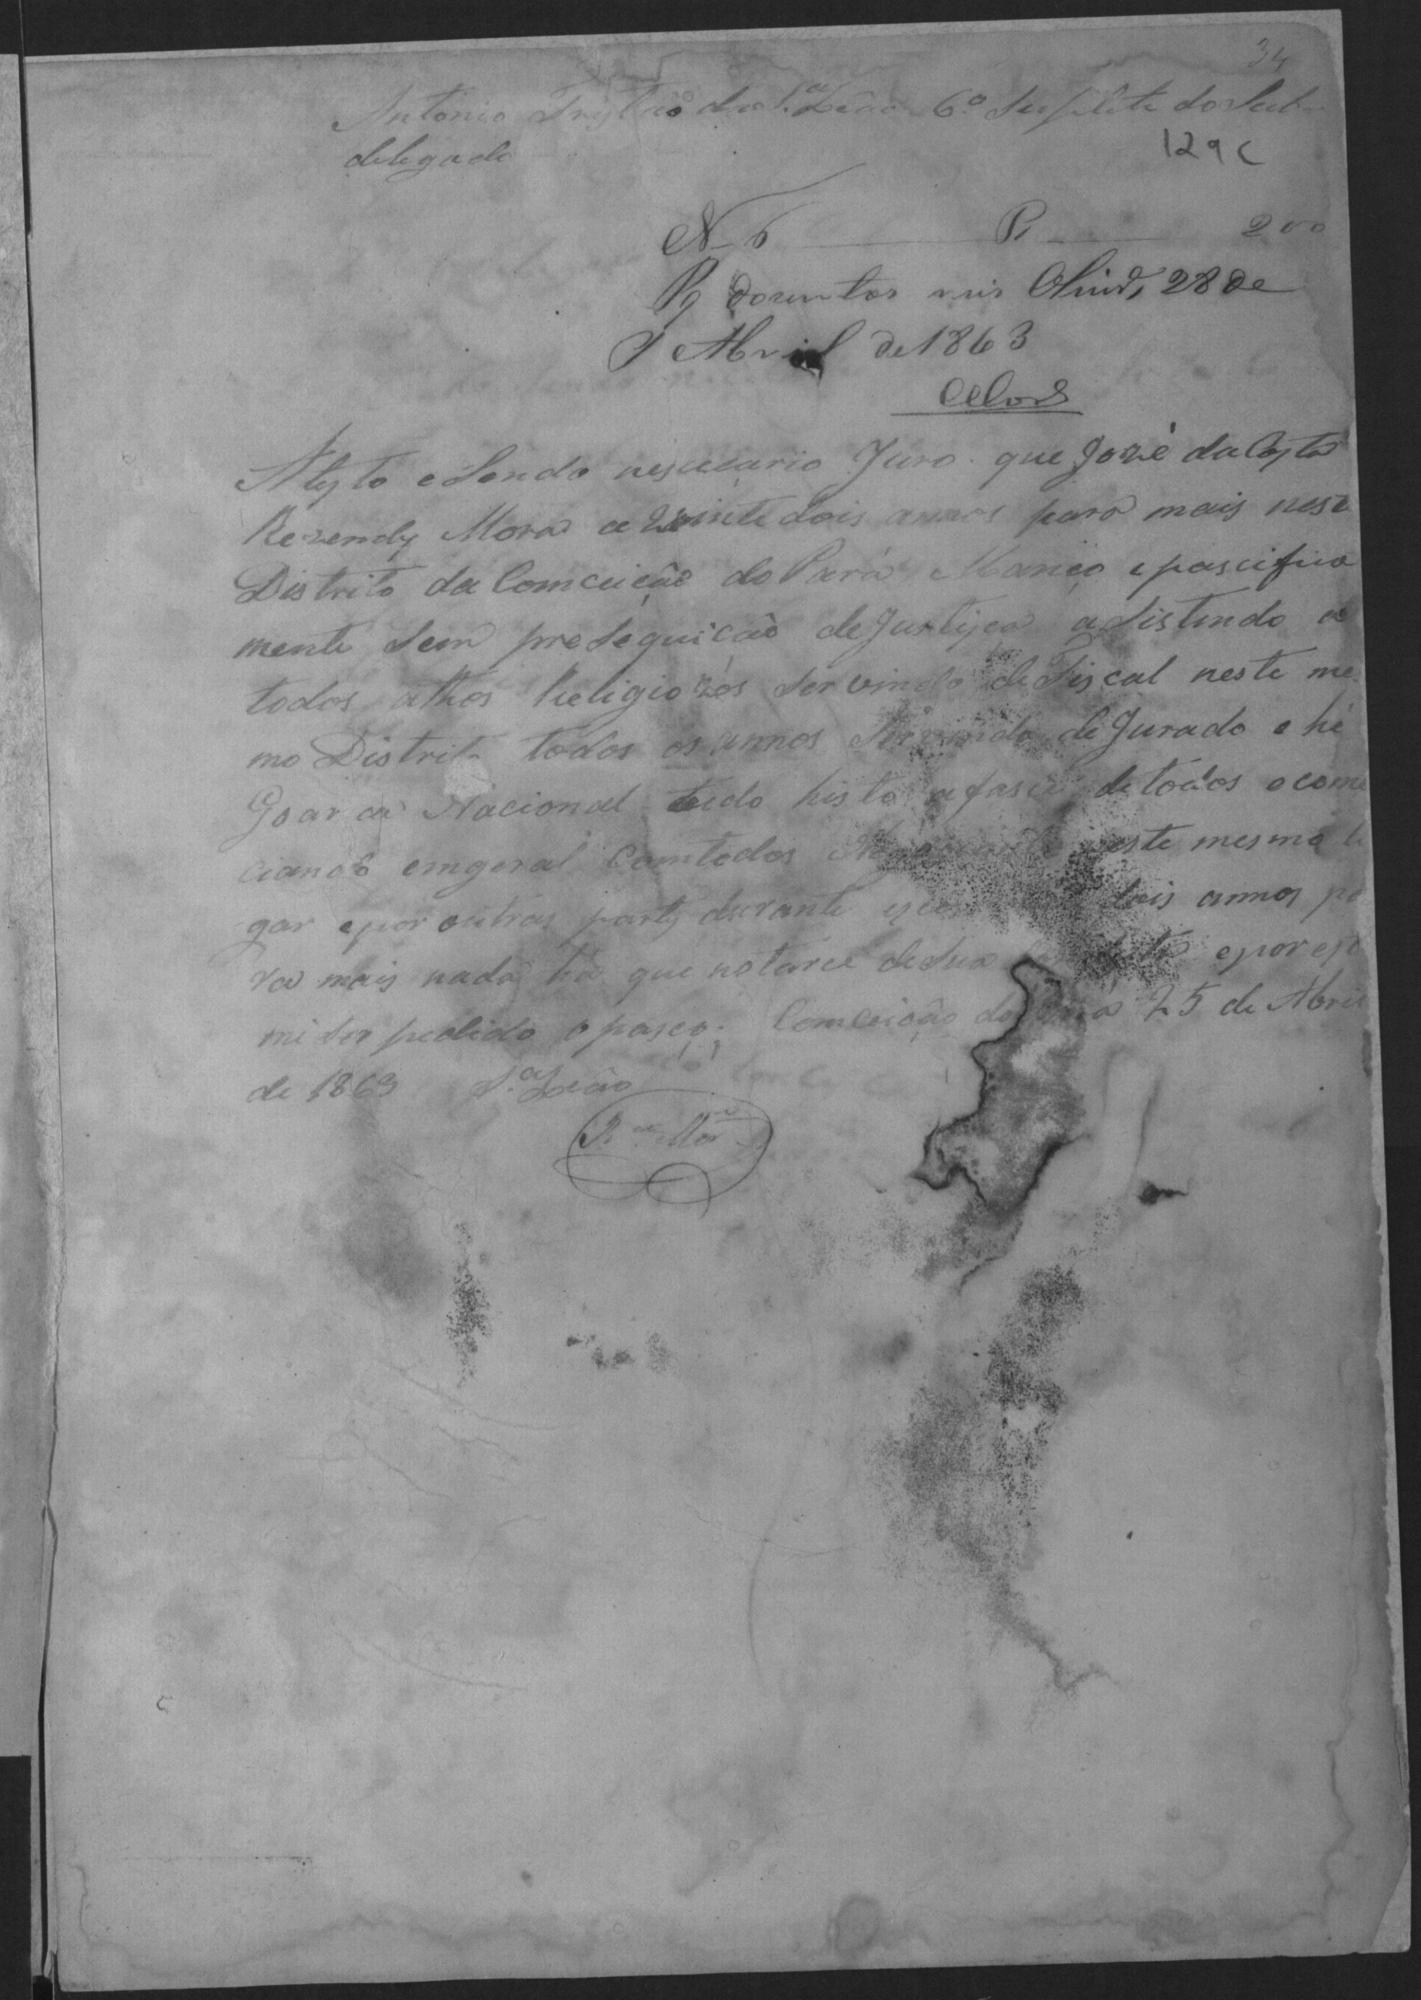 34
Antonio da S.ª Leão 6º Suplete do Sub
delegado
129 C
N 6 P 200
Pg dozentos reis 28 de
Abril de 1863
Atesto e Sendo nesceçario Juro que Jozé da Costa
Rezendes Mora a Vinte dois annos para mais nest
Distrito da Comceição do Pará Manço e pascifica
mente Sem preseguicão de Justiça asistindo a
todos athos Religiozos servindo de Fiscal neste me
mo Distrito todos os annos Servindo de Jurado e hé
Goarda Nacional tudo histo a fasce de todos
ciando emgeral Comtodos este mesmo lu
gar e por outras partes durante dois annos pa
ra mais nada ha que notarce de sua e por est
mi ser pedido o paseo. Comceição do Pará 25 de Abril
de 1863 S.ª Leão